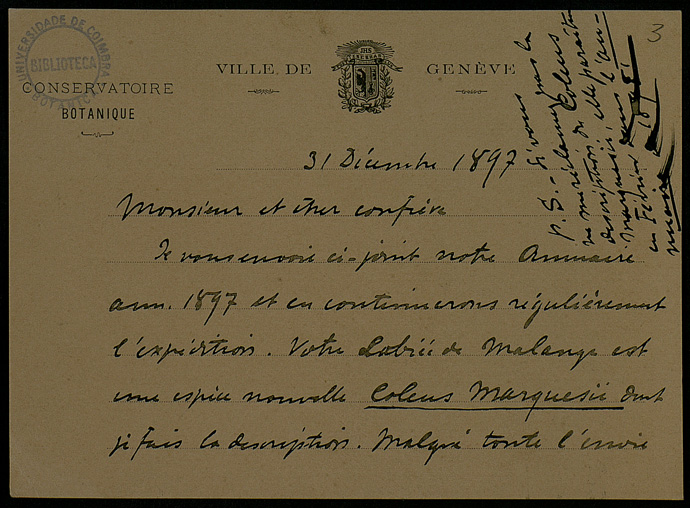 UNIVERSIDADE DE COIMBRA
BIBLIOTECA
BOTANICA
CONSERVATOIRE
BOTANIQUE
VILLE DE GENÈVE
IHS
3
31 Décembre 1897
Monsieur et cher confrère
Je vous envoie ci-joint notre Annuaire
ann. 1897 et en continuerons régulièrement
l'expédition. Votre Labiée de Malange est
une espèce nouvelle Coleus Marquesii dont
je fais la description. Malgré toute l'envie
P.S. - Si vous pas la
Coleus
description, elle paraîtra
Marquesii, dans l'an-
en Février 1898!